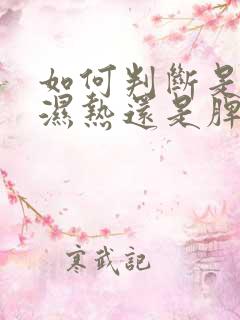 如何判斷是
濕熱還是脾
寒武記